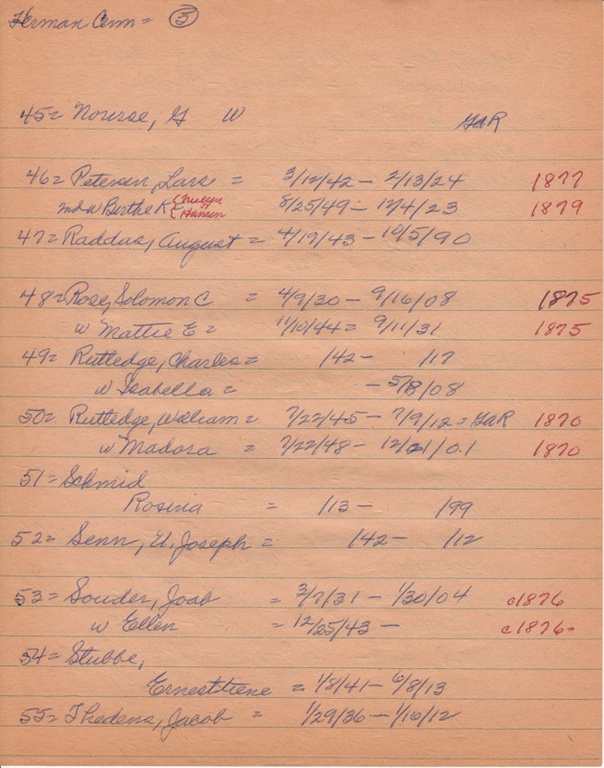 Herman Cem = 5
45 = Nourse, G W GAR
46 = Petersen, Lars = 3/12/42 - 2/13/24 1877
2nd w Birthe K = Hansen 8/25/49 - 12/4/23 1879
47 = Raddas, August = 4/19/43 - 10/5/90
48 = Rose, Solomon C = 4/9/30 - 9/16/08 1875
w Mattie E = 11/10/44 = 9/11/31 1875
49 = Rutledge, Charles = /42 - /17
w Isabella = - 5/8/08
50 = Rutledge, William = 7/22/45 - 7/9/12 = GAR 1870
w Madora = 7/22/48 - 12/21/01 1870
51 = Schmid
Rosina = /13 - /99
52 = Senn, U. Joseph = /42 - /12
53 = Souder, Joab = 3/7/31 - 1/30/04 c1876
w Ellen = 12/25/43 - c1876 =
54 = Stubbe,
Ernestitrene = 1/8/41 - 6/8/13
55 = Thedens, Jacob = 1/29/36 - 1/16/12